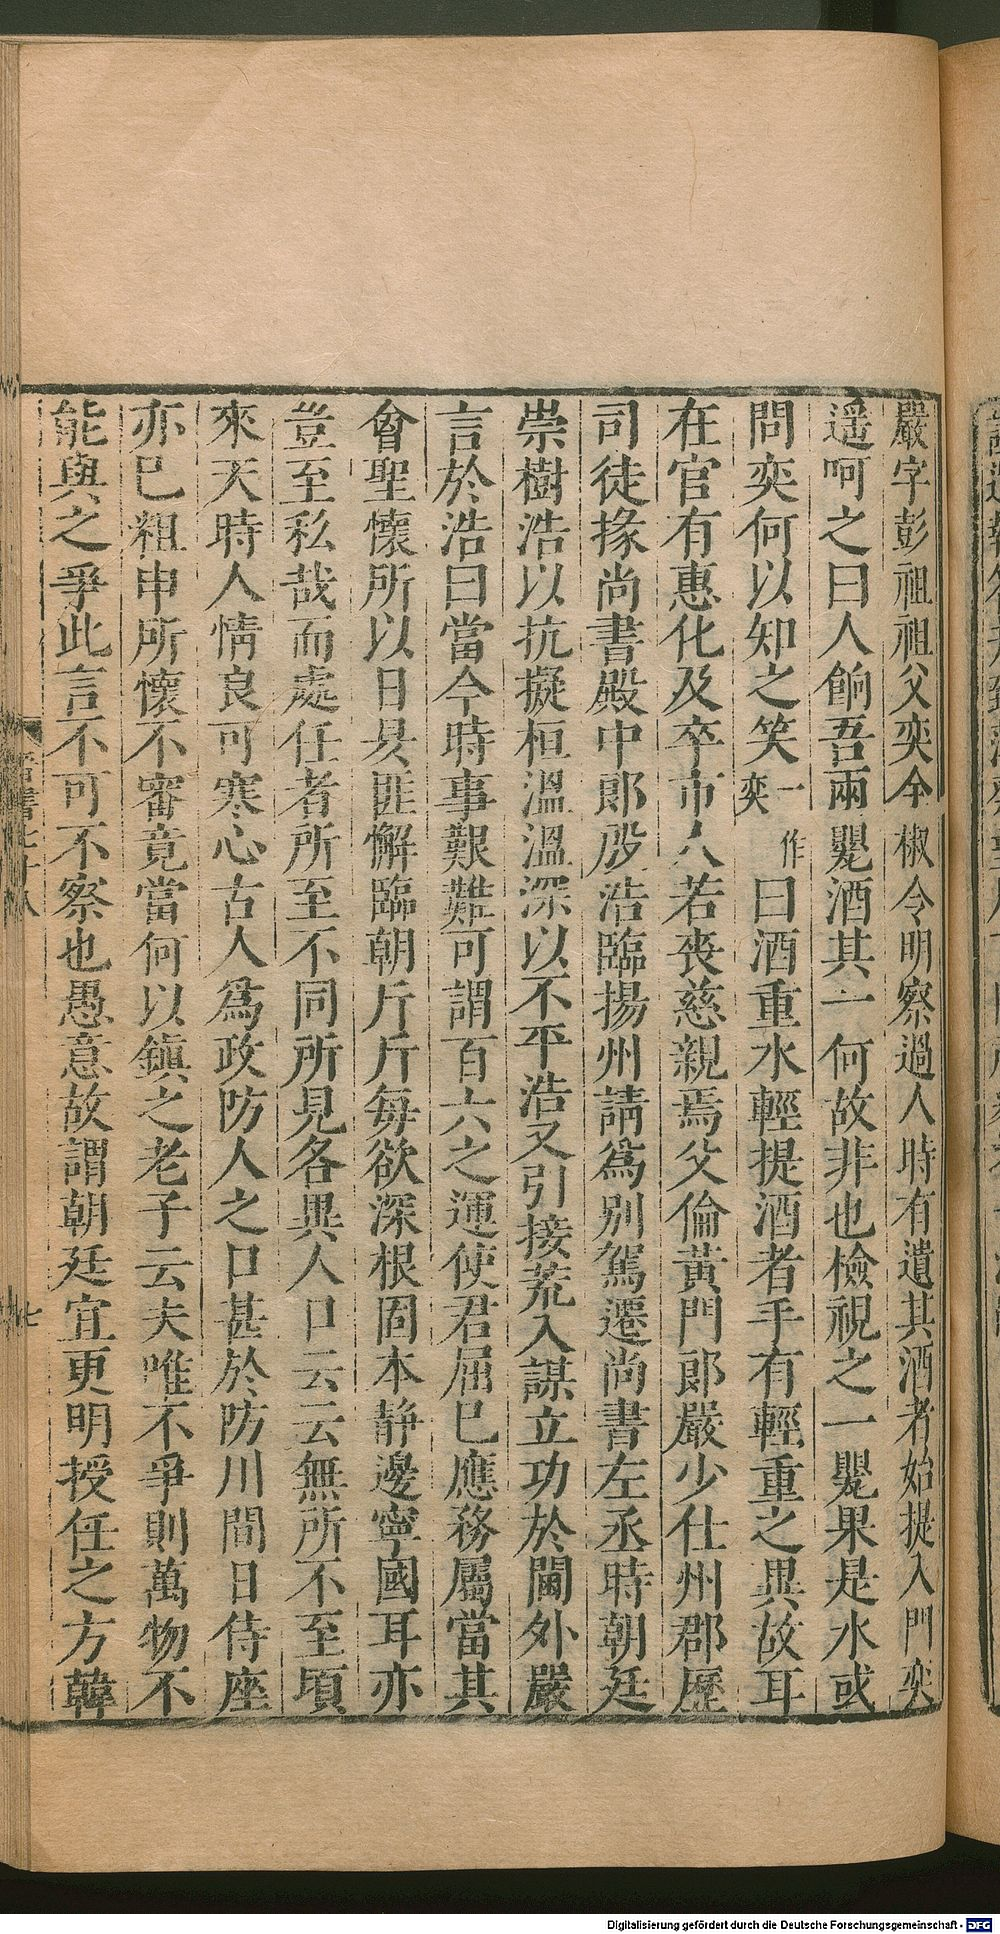 嚴字彭祖祖父奕全椒令明察過人時有遺其酒者始提入門奕
遥呵之曰人餉吾兩甖酒其一何故非也檢視之一甖果是水或
問奕何以知之笑一作奕曰酒重水輕提酒者手有輕重之異故耳
在官有惠化及卒市人若喪慈親焉父倫黃門郎嚴少仕州郡歷
司徒掾尚書殿中郎殷浩臨揚州請爲別駕遷尚書左丞時朝廷
崇樹浩以抗擬桓溫溫深以不平浩又引接荒人謀立功於閫外嚴
言於浩曰當今時事艱難可謂百六之運使君屈已應務屬當其
會聖懷所以日昃匪懈臨朝斤斤每欲深根固本静邊寧國耳亦
豈至私哉而處任者所至不同所見各異人口云云無所不至頃
來天時人情良可寒心古人爲政防人之口甚於防川間日侍座
亦已粗申所懷不審竟當何以鎮之老子云夫唯不爭則萬物不
能與之爭此言不可不察也愚意故謂朝廷宜更明授任之方韓
七
Digitalisierung gefördert durch die Deutsche Forschungsgemeinschaft - DFG